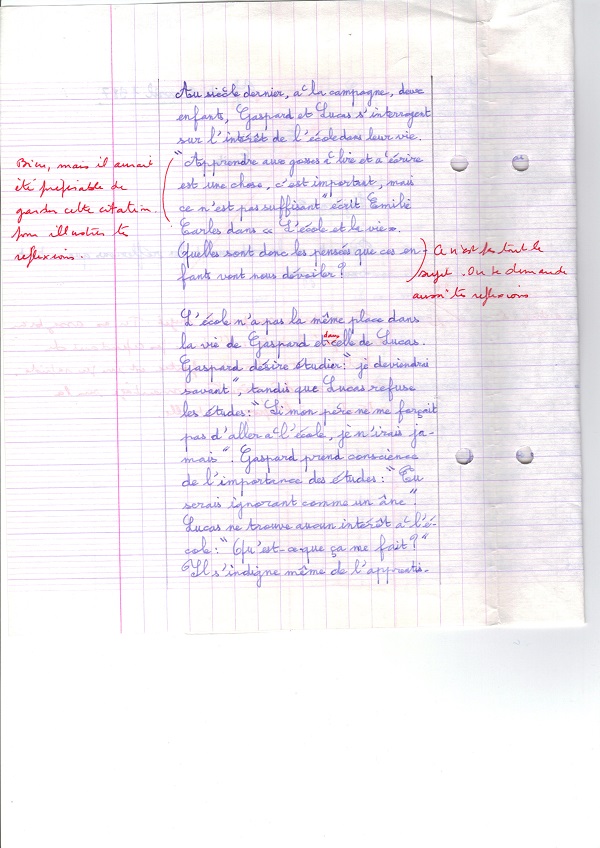 Au siècle dernier, à la campagne, deux
enfants, Gaspard et Lucas s'interrogent
sur l'intérêt de l'école dans leur vie.
"Apprendre aux gosses à lire et à écrire
est une chose, c'est important, mais
ce n'est pas suffisant" écrit Emilie
Carles dans « L'école et la vie ».
Quelles sont donc les pensées que ces en-
fants vont nous dévoiler ?
Bien, mais il aurait
été préférable de
garder cette citation
pour illustrer tes
réflexions.
Ce n'est pas tout le
sujet. On te demande
aussi tes réflexions
L'école n'a pas la même place dans
la vie de Gaspard et dans celle de Lucas.
Gaspard désire étudier : "je deviendrai
savant", tandis que Lucas refuse
les études : "Si mon père ne me forçait
pas d'aller à l'école, je n'irais ja-
mais". Gaspard prend conscience
de l'importance des études : "Tu
serais ignorant comme un âne".
Lucas ne trouve aucun intérêt à l'é-
cole : "Qu'est-ce-que ça me fait ?"
Il s'indigne même de l'apprentis-